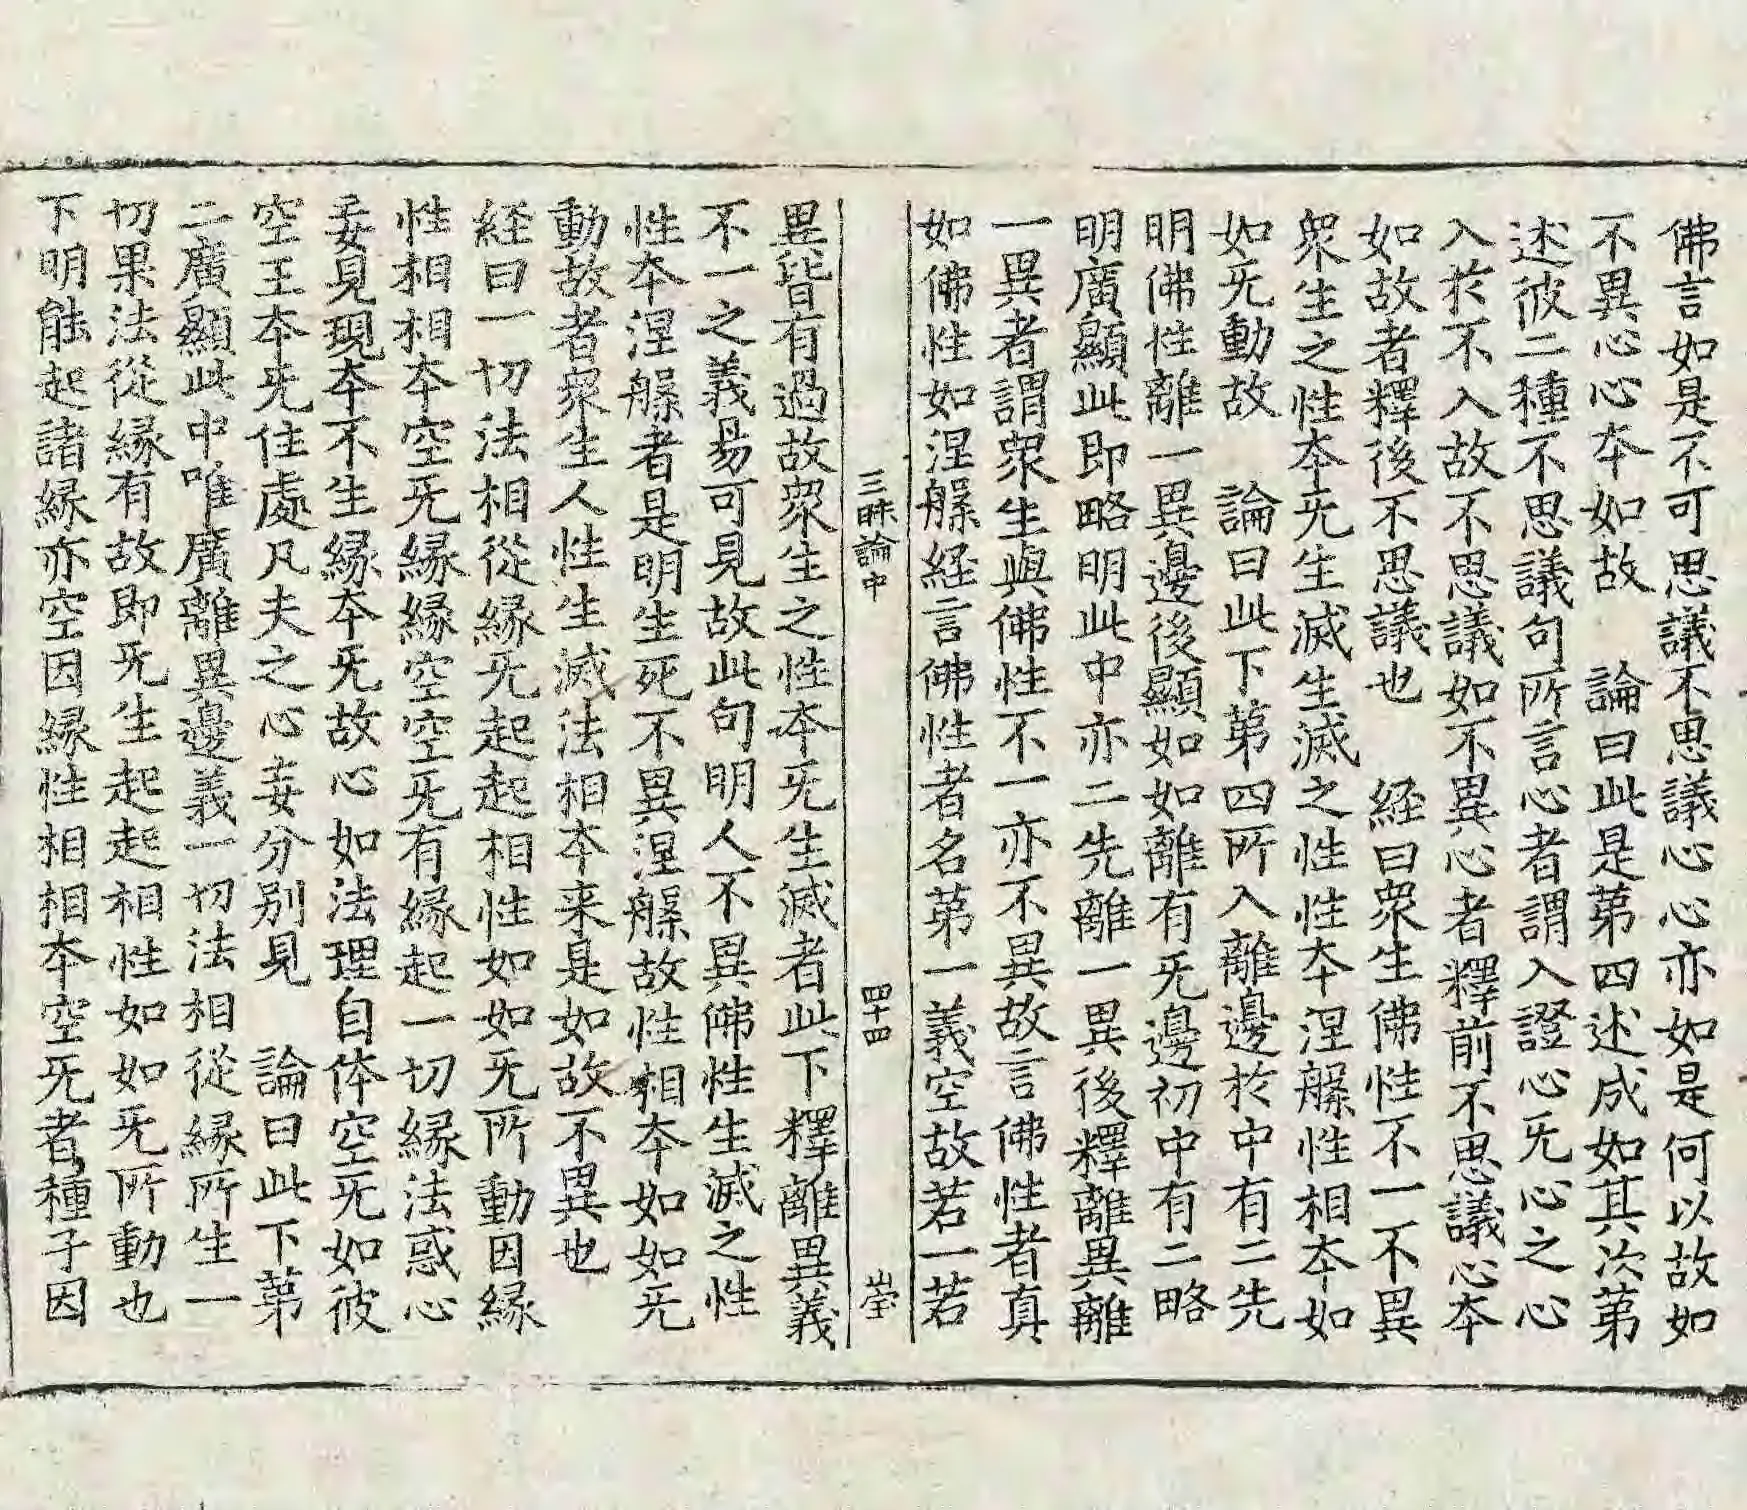 佛言如是不可思議不思議心心亦如是何以故如
不異心心本如故　論曰此是第四述成如其次第
述彼二種不思議句所言心者謂入證心旡心之心
入於不入故不思議如不異心者釋前不思議心本
如故者釋後不思議也　経曰衆生佛性不一不異
衆生之性本旡生滅生滅之性性本涅槃性相本如
如旡動故　論曰此下第四所入離邊於中有二先
明佛性離一異邊後顯如如離有旡邊初中有二略
明廣顯此即略明此中亦二先離一異後釋離異離
一異者謂衆生與佛性不一亦不異故言佛性者真
如佛性如涅槃経言佛性者名第一義空故若一若
三昧論中　四十四
異皆有過故衆生之性本旡生滅者此下釋離異義
不一之義易可見故此句明人不異佛性生滅之性
性本涅槃者是明生死不異涅槃故性相本如如旡
動故者衆生人性生滅法相本来是如故不異也
経曰一切法相從緣旡起起相性如如旡所動因緣
性相相本空旡緣緣空空旡有緣起一切緣法惑心
妄見現本不生緣本旡故心如法理自体空旡如彼
空王本旡住處凡夫之心妄分別見　論曰此下第
二廣顯此中唯廣離異邊義一切法相從緣所生一
切果法從緣有故即旡生起起相性如如旡所動也
下明能起諸緣亦空因緣性相相本空旡者種子因